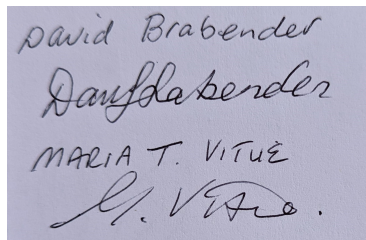 David Brabender
DaufBrabender
MARIA T. VITUÈ
M. Vitue.